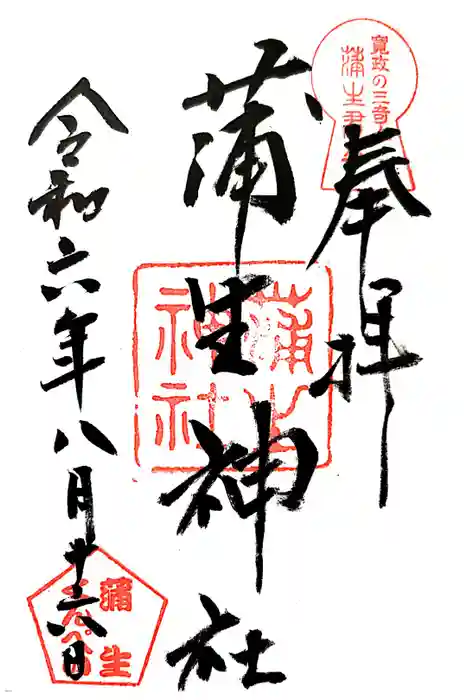 寛政の三奇
蒲生君
奉拝
蒲生神社
蒲生
神社
令和六年八月十六日
蒲生